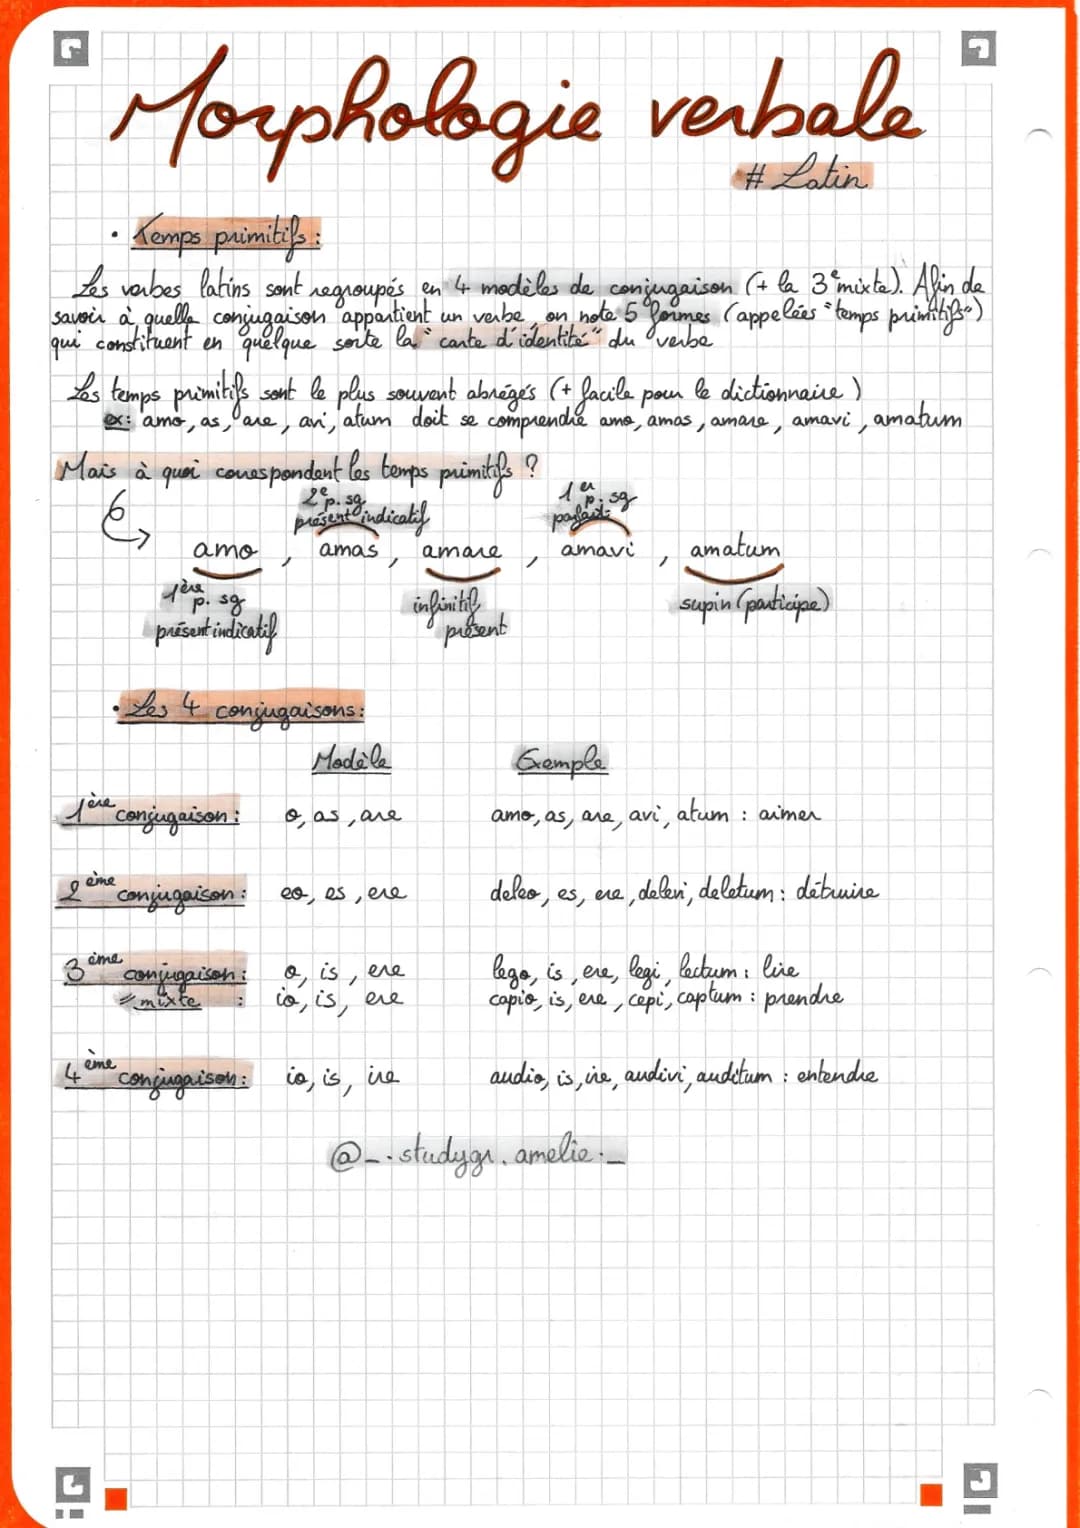 Morphologie verbale
# Latin
• Temps primitifs :
Les verbes latins sont regroupés en 4 modèles de conjugaison (+ la 3e mixte). Afin de
savoir à quelle conjugaison appartient un verbe, on note 5 formes (appelées "temps primitifs")
qui constituent en quelque sorte la "carte d'identité" du verbe
Les temps primitifs sont le plus souvent abrégés (+ facile pour le dictionnaire)
ex: amo, as, are, avi, atum doit se comprendre amo, amas, amare, amavi, amatum
Mais à quoi correspondent les temps primitifs ?
2e p. sg présent indicatif
1er p. sg parfait
amo, amas, amare, amavi, amatum
1ère p. sg présent indicatif
infinitif présent
supin (participe)
• Les 4 conjugaisons :
Modèle Exemple
1ère conjugaison : o, as, are amo, as, are, avi, atum : aimer
2ème conjugaison : eo, es, ere deleo, es, ere, delevi, deletum : détruire
3ème conjugaison : o, is, ere lego, is, ere, legi, lectum : lire
mixte : io, is, ere capio, is, ere, cepi, captum : prendre
4ème conjugaison : io, is, ire audio, is, ire, audivi, auditum : entendre
@_.studygr.amelie._